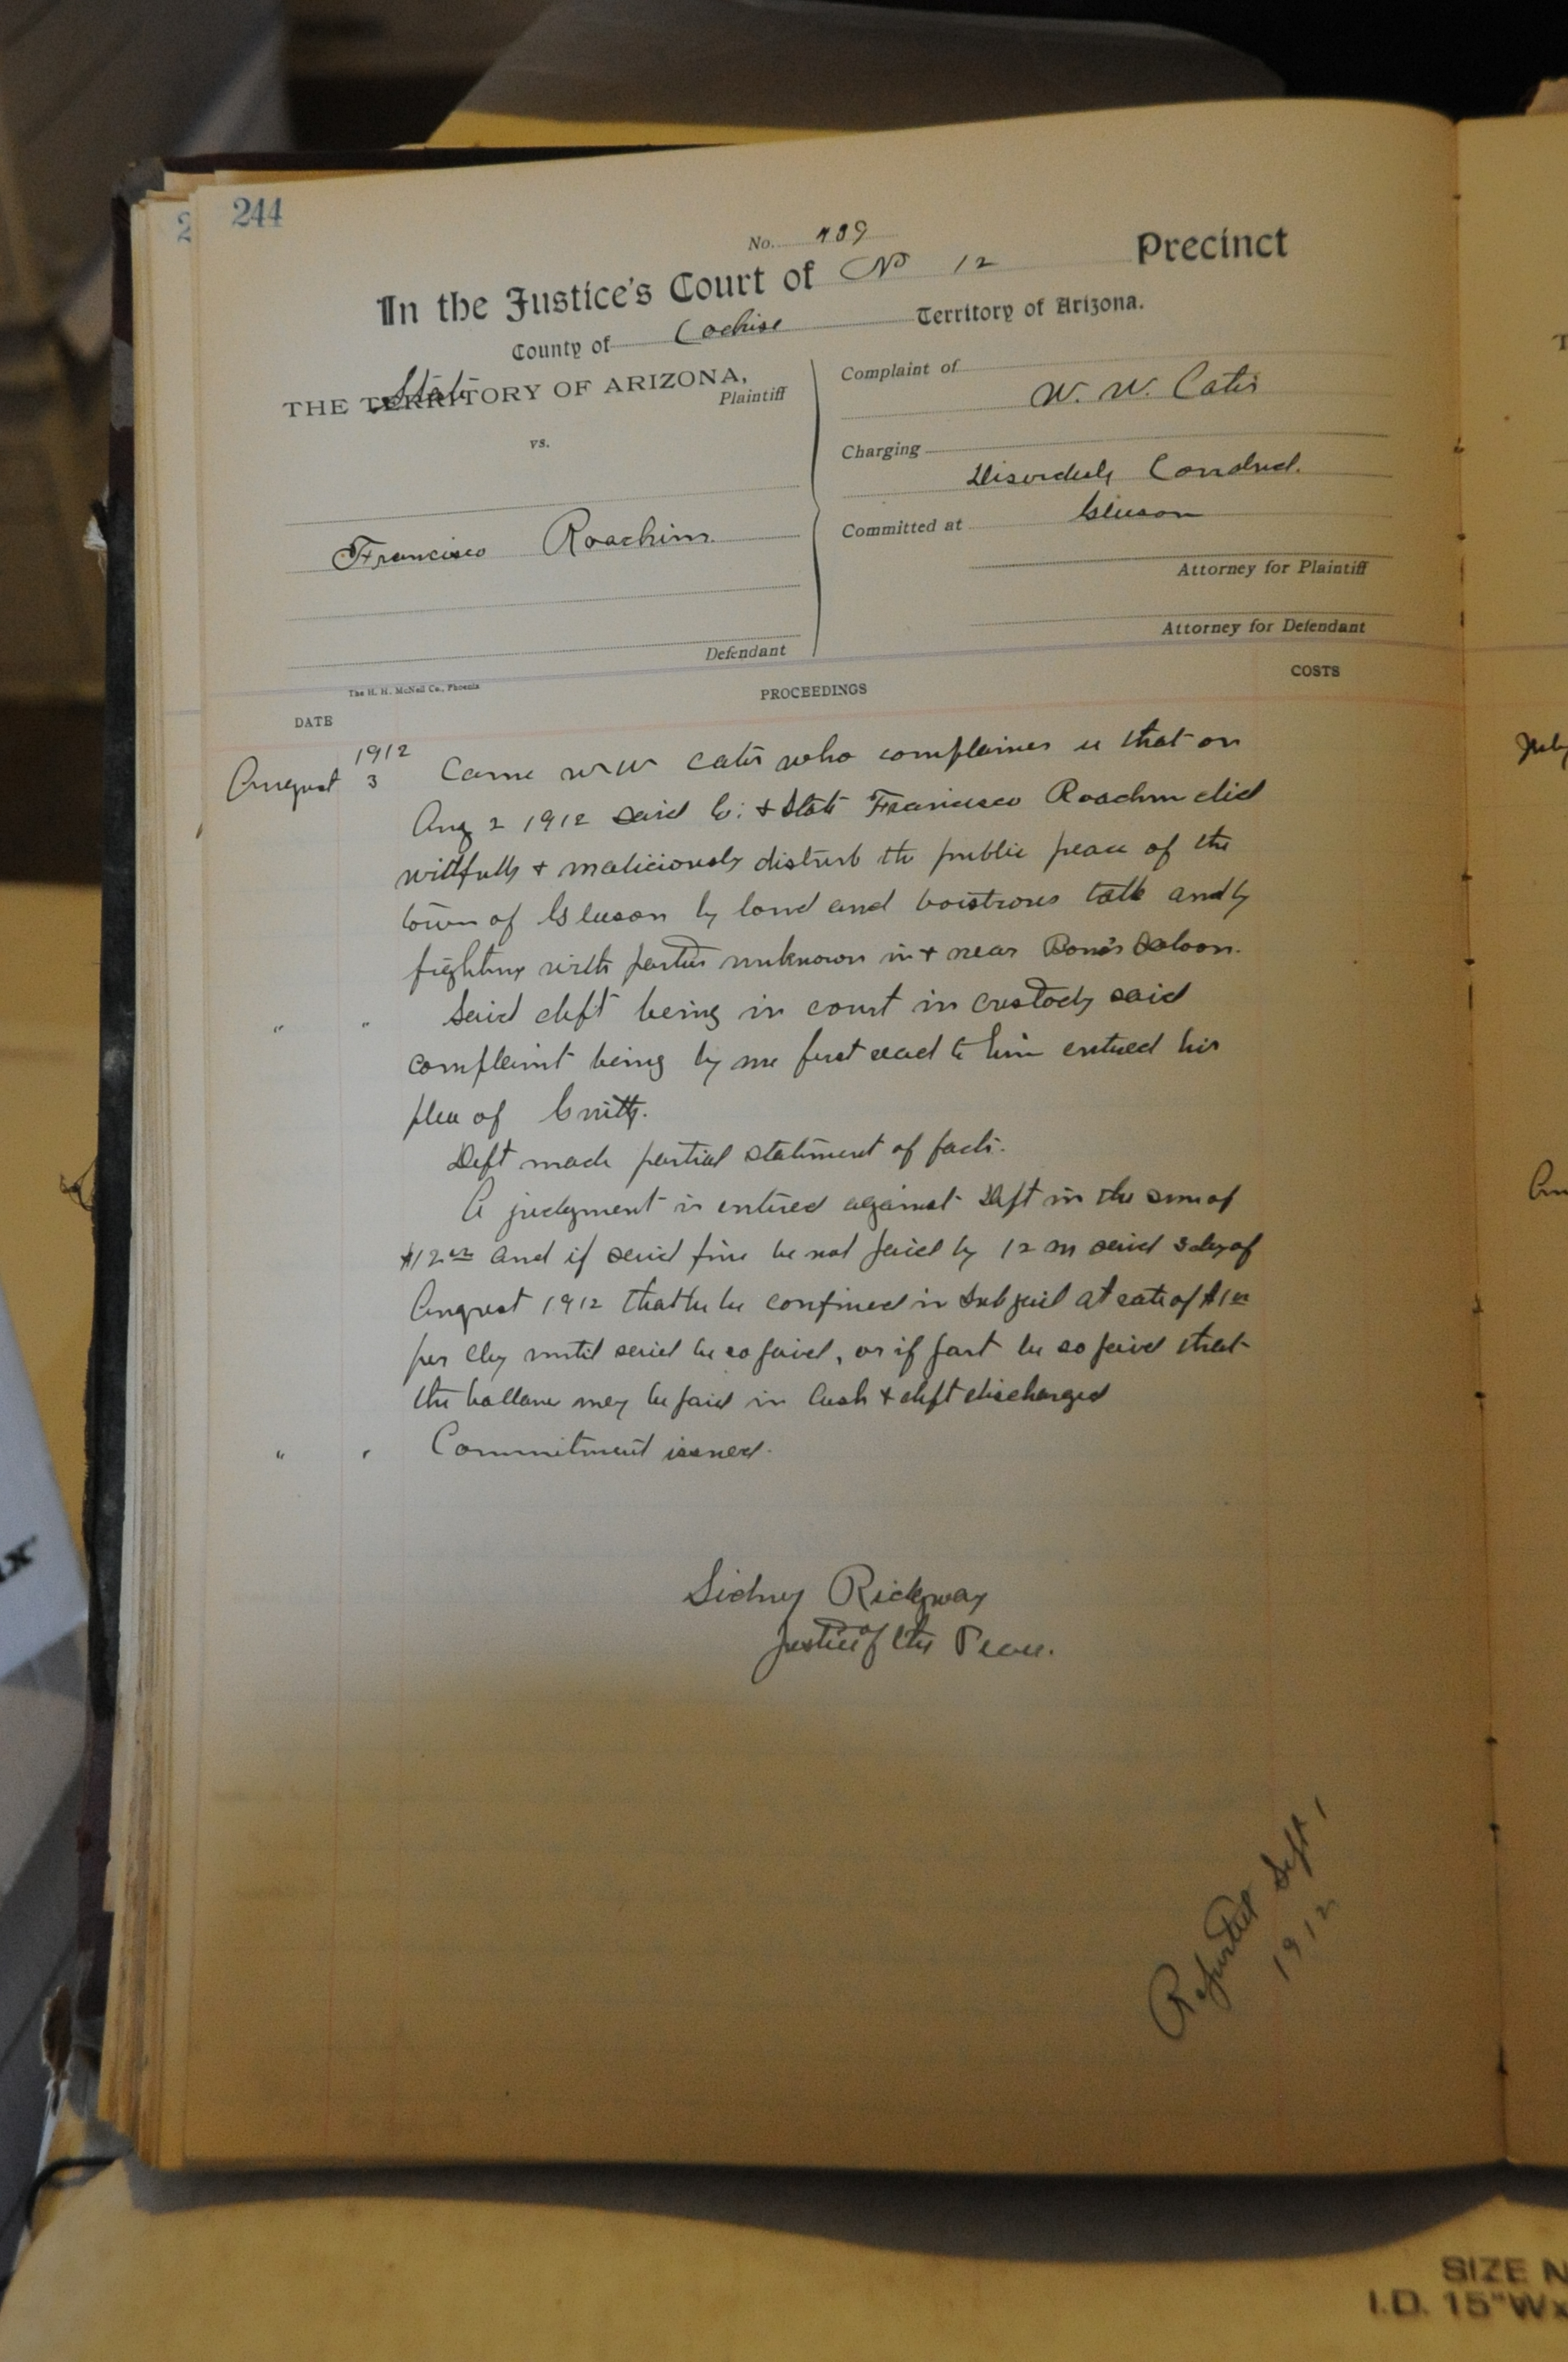 244
No. 489
In the Justice's Court of No 12 Precinct
County of Cochise Territory of Arizona.
State
THE TERRITORY OF ARIZONA,
Plaintiff
vs.
Francisco Roachim
Defendant
Complaint of
W. W. Cates
Charging
Disorderly Conduct.
Committed at Gleeson
Attorney for Plaintiff
Attorney for Defendant
The H. H. McNeil Co., Phoenix
DATE PROCEEDINGS COSTS
1912
August 3 Came W W Cates who complaines is that on
Aug 2 1912 said Co: & State Francisco Roachim did
willfully & maliciously disturb the public peace of the
town of Gleeson by loud and boistrous talk and by
fighting with parties unknown in & near Bono's Saloon.
" " Said deft being in court in custody said
complaint being by me first read to him entered his
plea of Guilty.
Deft made partial statement of facts.
A judgment is entered against Deft in the sum of
$12 00 and if said fine be not paid by 12 m said 3 day of
August 1912 that he be confined in Sub jail at rate of $1 00
per day until said be so paid, or if part be so paid that
the ballanc may be paid in Cash & deft discharged
" " Commitment issued.
Sidney Ridgway
Justice of the Peace.
Reported Sept 1
1912
July
SIZE N
I.D. 15"Wx